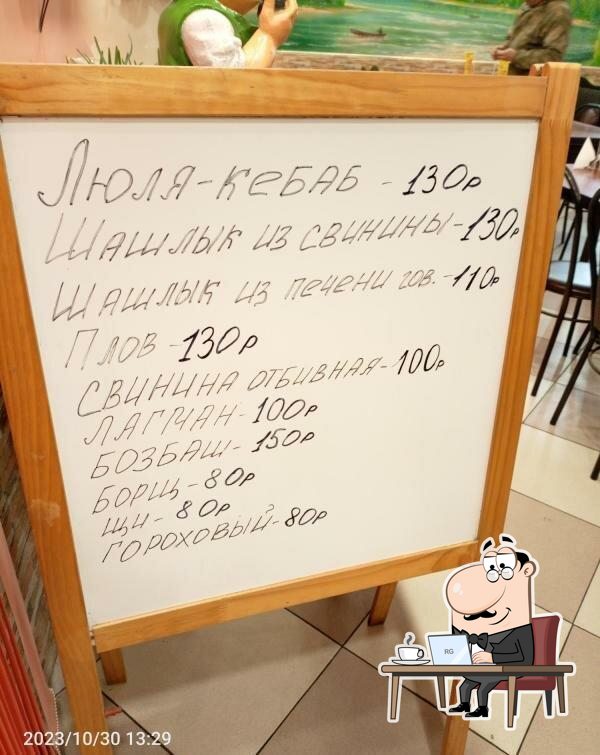 Люля-кебаб - 130р
Шашлык из свинины - 130р
Шашлык из печени гов. - 110р
Плов - 130р
Свинина отбивная - 100р
Лагман - 100р
Бозбаш - 150р
Борщ - 80р
Щи - 80р
Гороховый - 80р
RG
2023/10/30 13:29